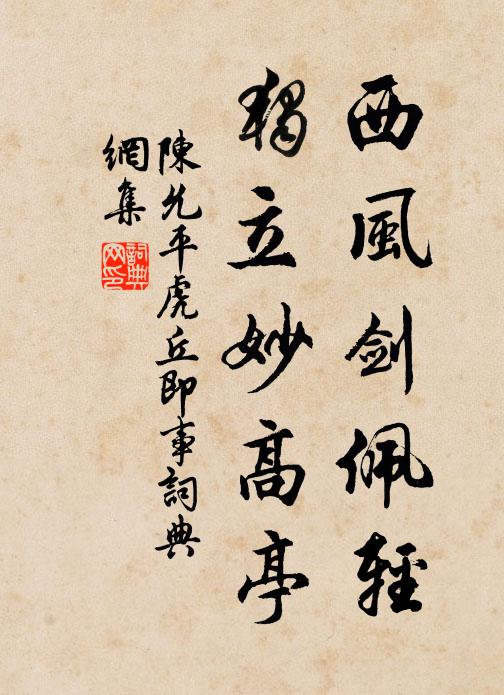 西風劍佩輕
獨立妙高亭
陳允平虎丘即事詞典
網集
詞典
网印